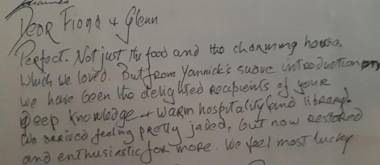 Dear Fiona & Glenn
Perfect. Not just the food and the charming house,
which we loved. But from Yannick's suave introduction on
we have been the delighted recipients of your
deep knowledge + warm hospitality (and library!)
We arrived feeling pretty jaded, but now restored
and enthusiastic for more. We feel most lucky